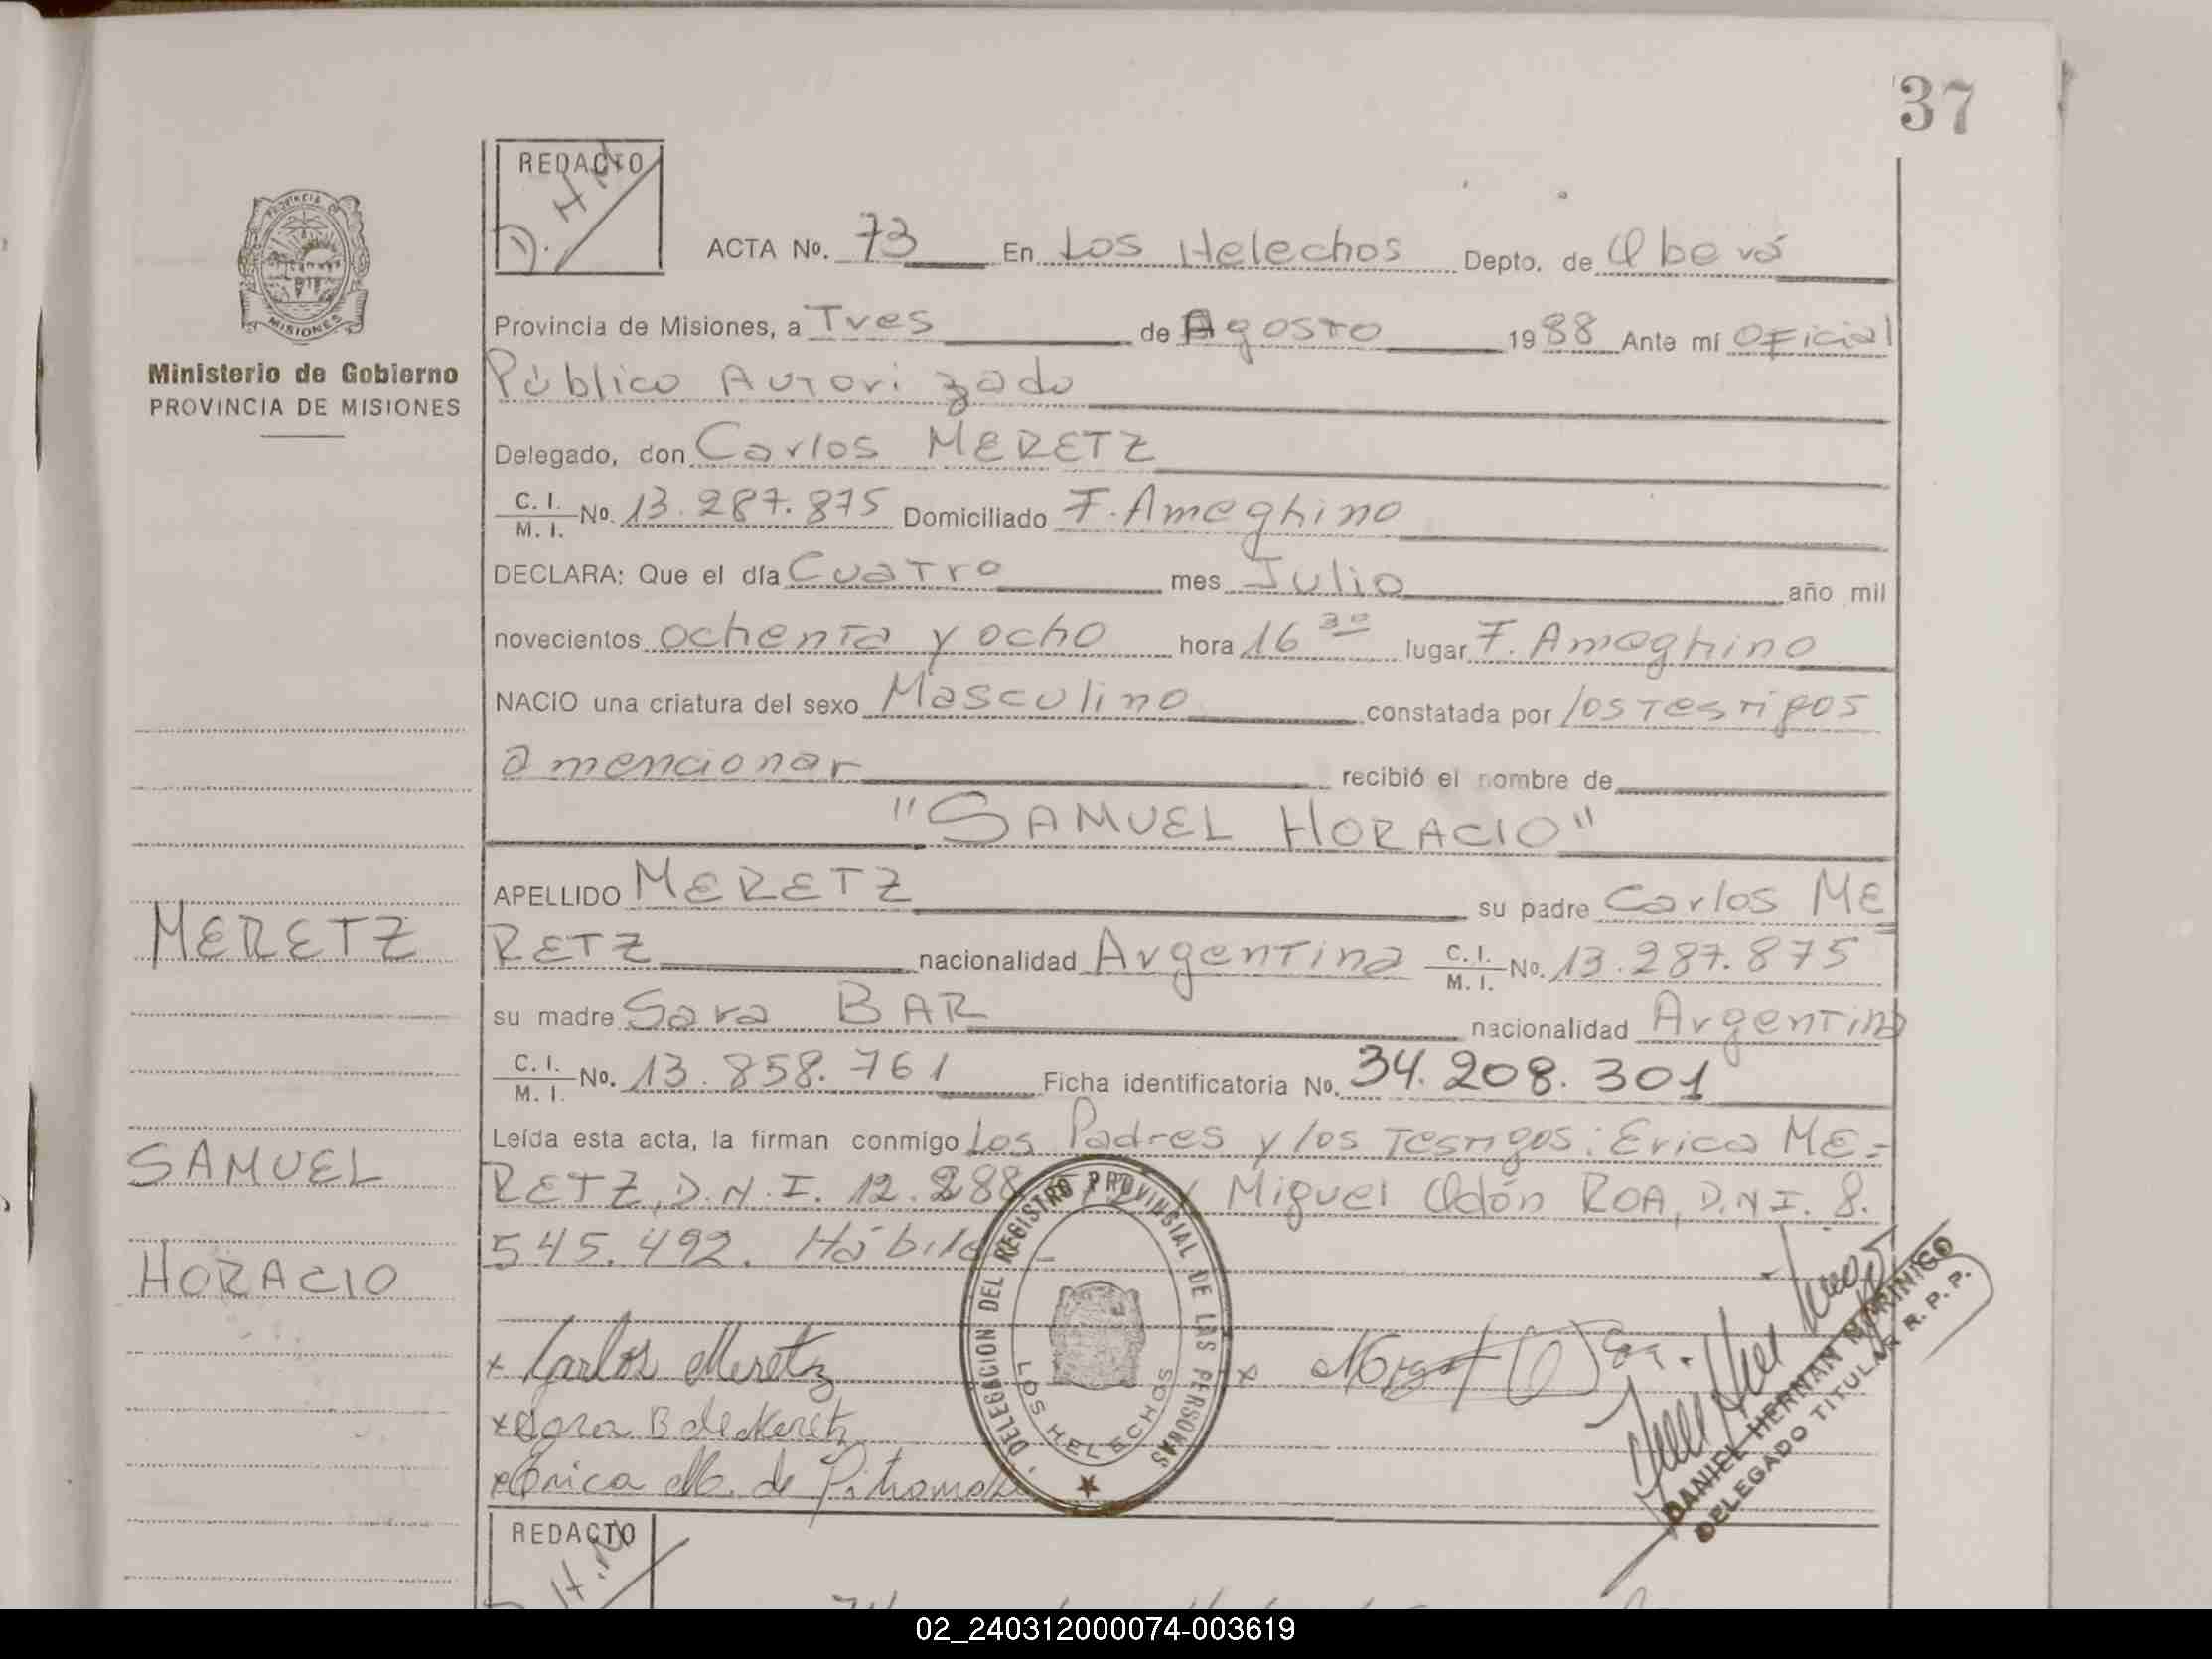 37
REDACTO
D. H. N
ACTA Nº. 73 En Los Helechos Depto. de Oberá
Provincia de Misiones, a Tres de Agosto 1988 Ante mí Oficial
Ministerio de Gobierno
PROVINCIA DE MISIONES
Público Autorizado
Delegado, don Carlos MERETZ
C. I. / M. I. Nº. 13.287.875 Domiciliado F. Ameghino
DECLARA: Que el día Cuatro mes Julio año mil
novecientos ochenta y ocho hora 16 30 lugar F. Ameghino
NACIO una criatura del sexo Masculino constatada por los testigos
a mencionar recibió el nombre de
"SAMUEL HORACIO"
APELLIDO MERETZ su padre Carlos ME
RETZ nacionalidad Argentina C. I. / M. I. Nº. 13.287.875
su madre Sara BAR nacionalidad Argentina
C. I. / M. I. Nº. 13.858.761 Ficha identificatoria Nº. 34.208.301
Leída esta acta, la firman conmigo Los Padres y los Testigos: Erica ME=
RETZ, D.N.I. 12. Miguel Odón ROA, D.N.I. 8.
545.492.
MERETZ
SAMUEL
HORACIO
x Carlos Meretz
x Sara B de Meretz
x Erica M. de
DELEGACION DEL REGISTRO PROVINCIAL DE LAS PERSONAS
LOS HELECHOS
DANIEL HERNAN MARINIGO
DELEGADO TITULAR R. P. P.
REDACTO
H. N
02_240312000074-003619